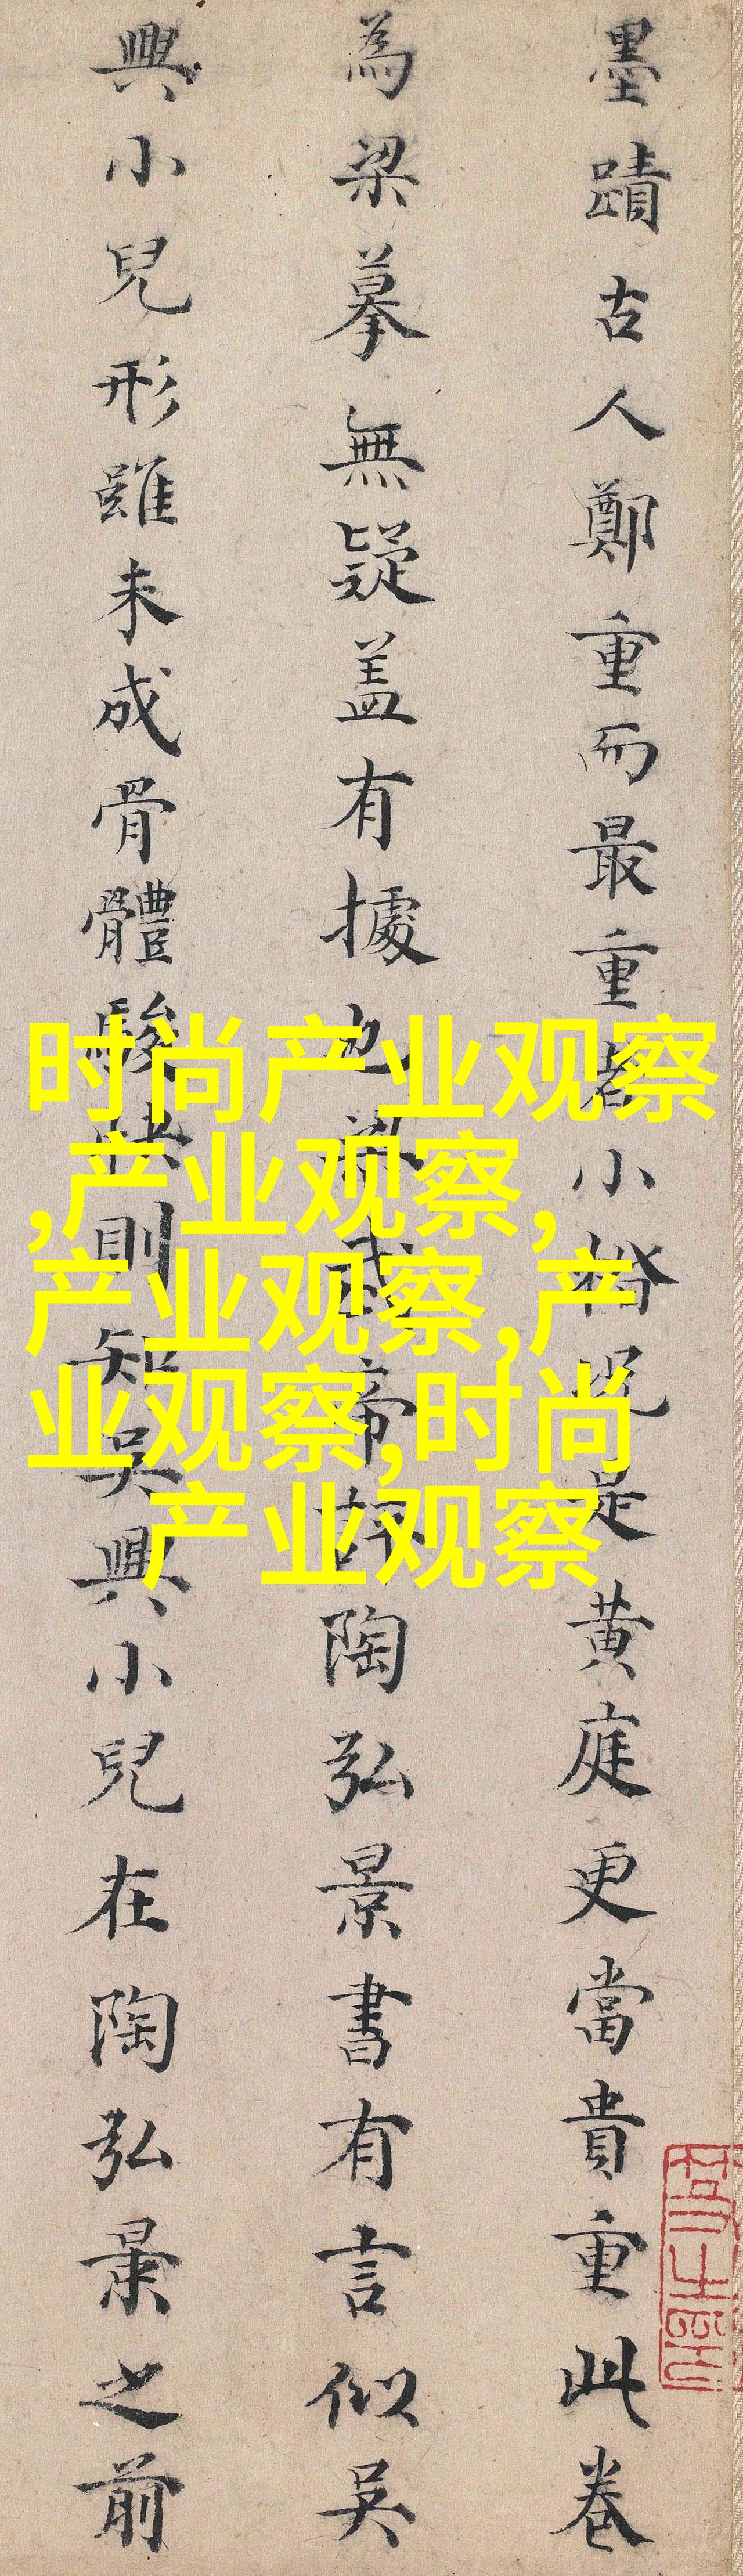 墨蹟古人鄭重而最重者小楷況是黄庭更當貴重此卷
為梁摹無疑盖有據也梁武帝評陶弘景書有言似吳
興小兒形雖未成骨體駿快則知吳興小兒在陶弘景之前
时尚产业观察
,产业观察,
产业观察,产
业观察,时尚
产业观察